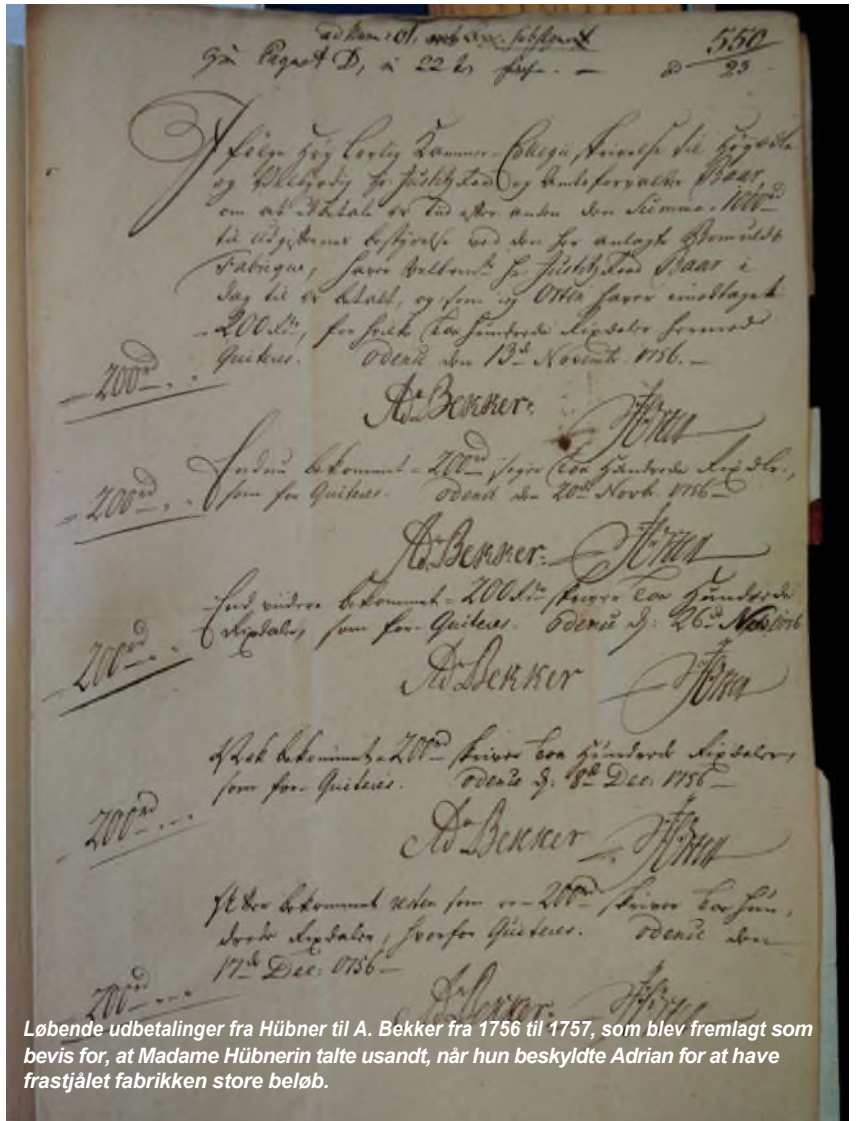 550
Paquet D, 22 25
Ifølge Høy Cammer Collegii skrivelse til
og Velbyrdig Hr. Justitz Raad og Amtsforvalter Baar,
om at betale er tid efter anden den Summa 1000 rd
til Udgifternes bestyrelse ved den her anlagte Bomulds
Fabrique, haver Hr. Justitz Raad Baar i
dag til er betalt, og som og haver imodtaget
200 for hvilke toe hundrede Rixdaler hermed
Quiteres. Odense den 13de Novemb. 1756.
200 rd
Ad. Bekker.
Endnu bekommet 200 rd siger toe Hundrede Rixdlr.,
200 rd som for Quiteres. Odense den 20de Novb. 1756
Ad. Bekker.
End videre bekommet 200 skriver toe Hundrede
Rixdaler, som for Quiteres. Odense d: 26de 1756
200 rd
Ad. Bekker
bekommet 200 rd skriver toe Hundrede Rixdaler,
som for Quiteres. Odense d: 8de Dec: 1756
200 rd
Ad. Bekker
bekommet resten som er 200 rd skriver toe Hun-
drede Rixdaler, hvorfor Quiteres. Odense den
17de Dec: 1756
200 rd
Ad. Bekker.
Løbende udbetalinger fra Hübner til A. Bekker fra 1756 til 1757, som blev fremlagt som
bevis for, at Madame Hübnerin talte usandt, når hun beskyldte Adrian for at have
frastjålet fabrikken store beløb.